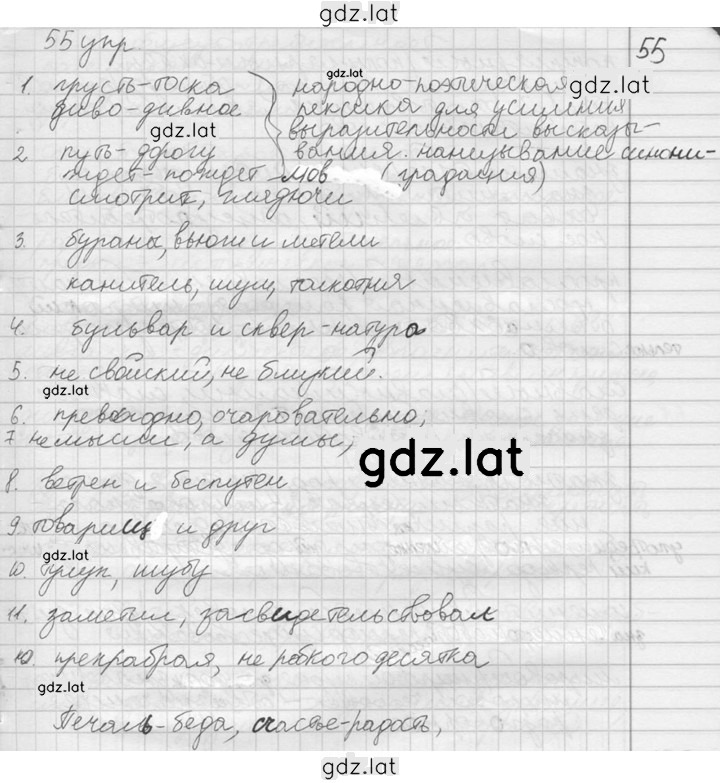 gdz.lat
55 упр.
55
1. грусть-тоска народно-поэтическая
диво-дивное лексика для усиления
gdz.lat
выразительности высказы-
2. путь-дорогу вания. нанизывание синони-
идет-пойдет мов (градация)
смотрит, глядючи
3. бураны, вьюги и метели
канитель, шум, толкотня
4. бульвар и сквер-натура
5. не свойский, не близкий.
gdz.lat
6. превосходно, очаровательно;
7 не мысли, а думы;
gdz.lat
8. ветрен и беспутен
9. товарищ и друг
gdz.lat
10. тулуп, шубу
11. заметил, засвидетельствовал
12. прехрабрая, не робкого десятка
gdz.lat
Печаль-беда, счастье-радость,
gdz.lat